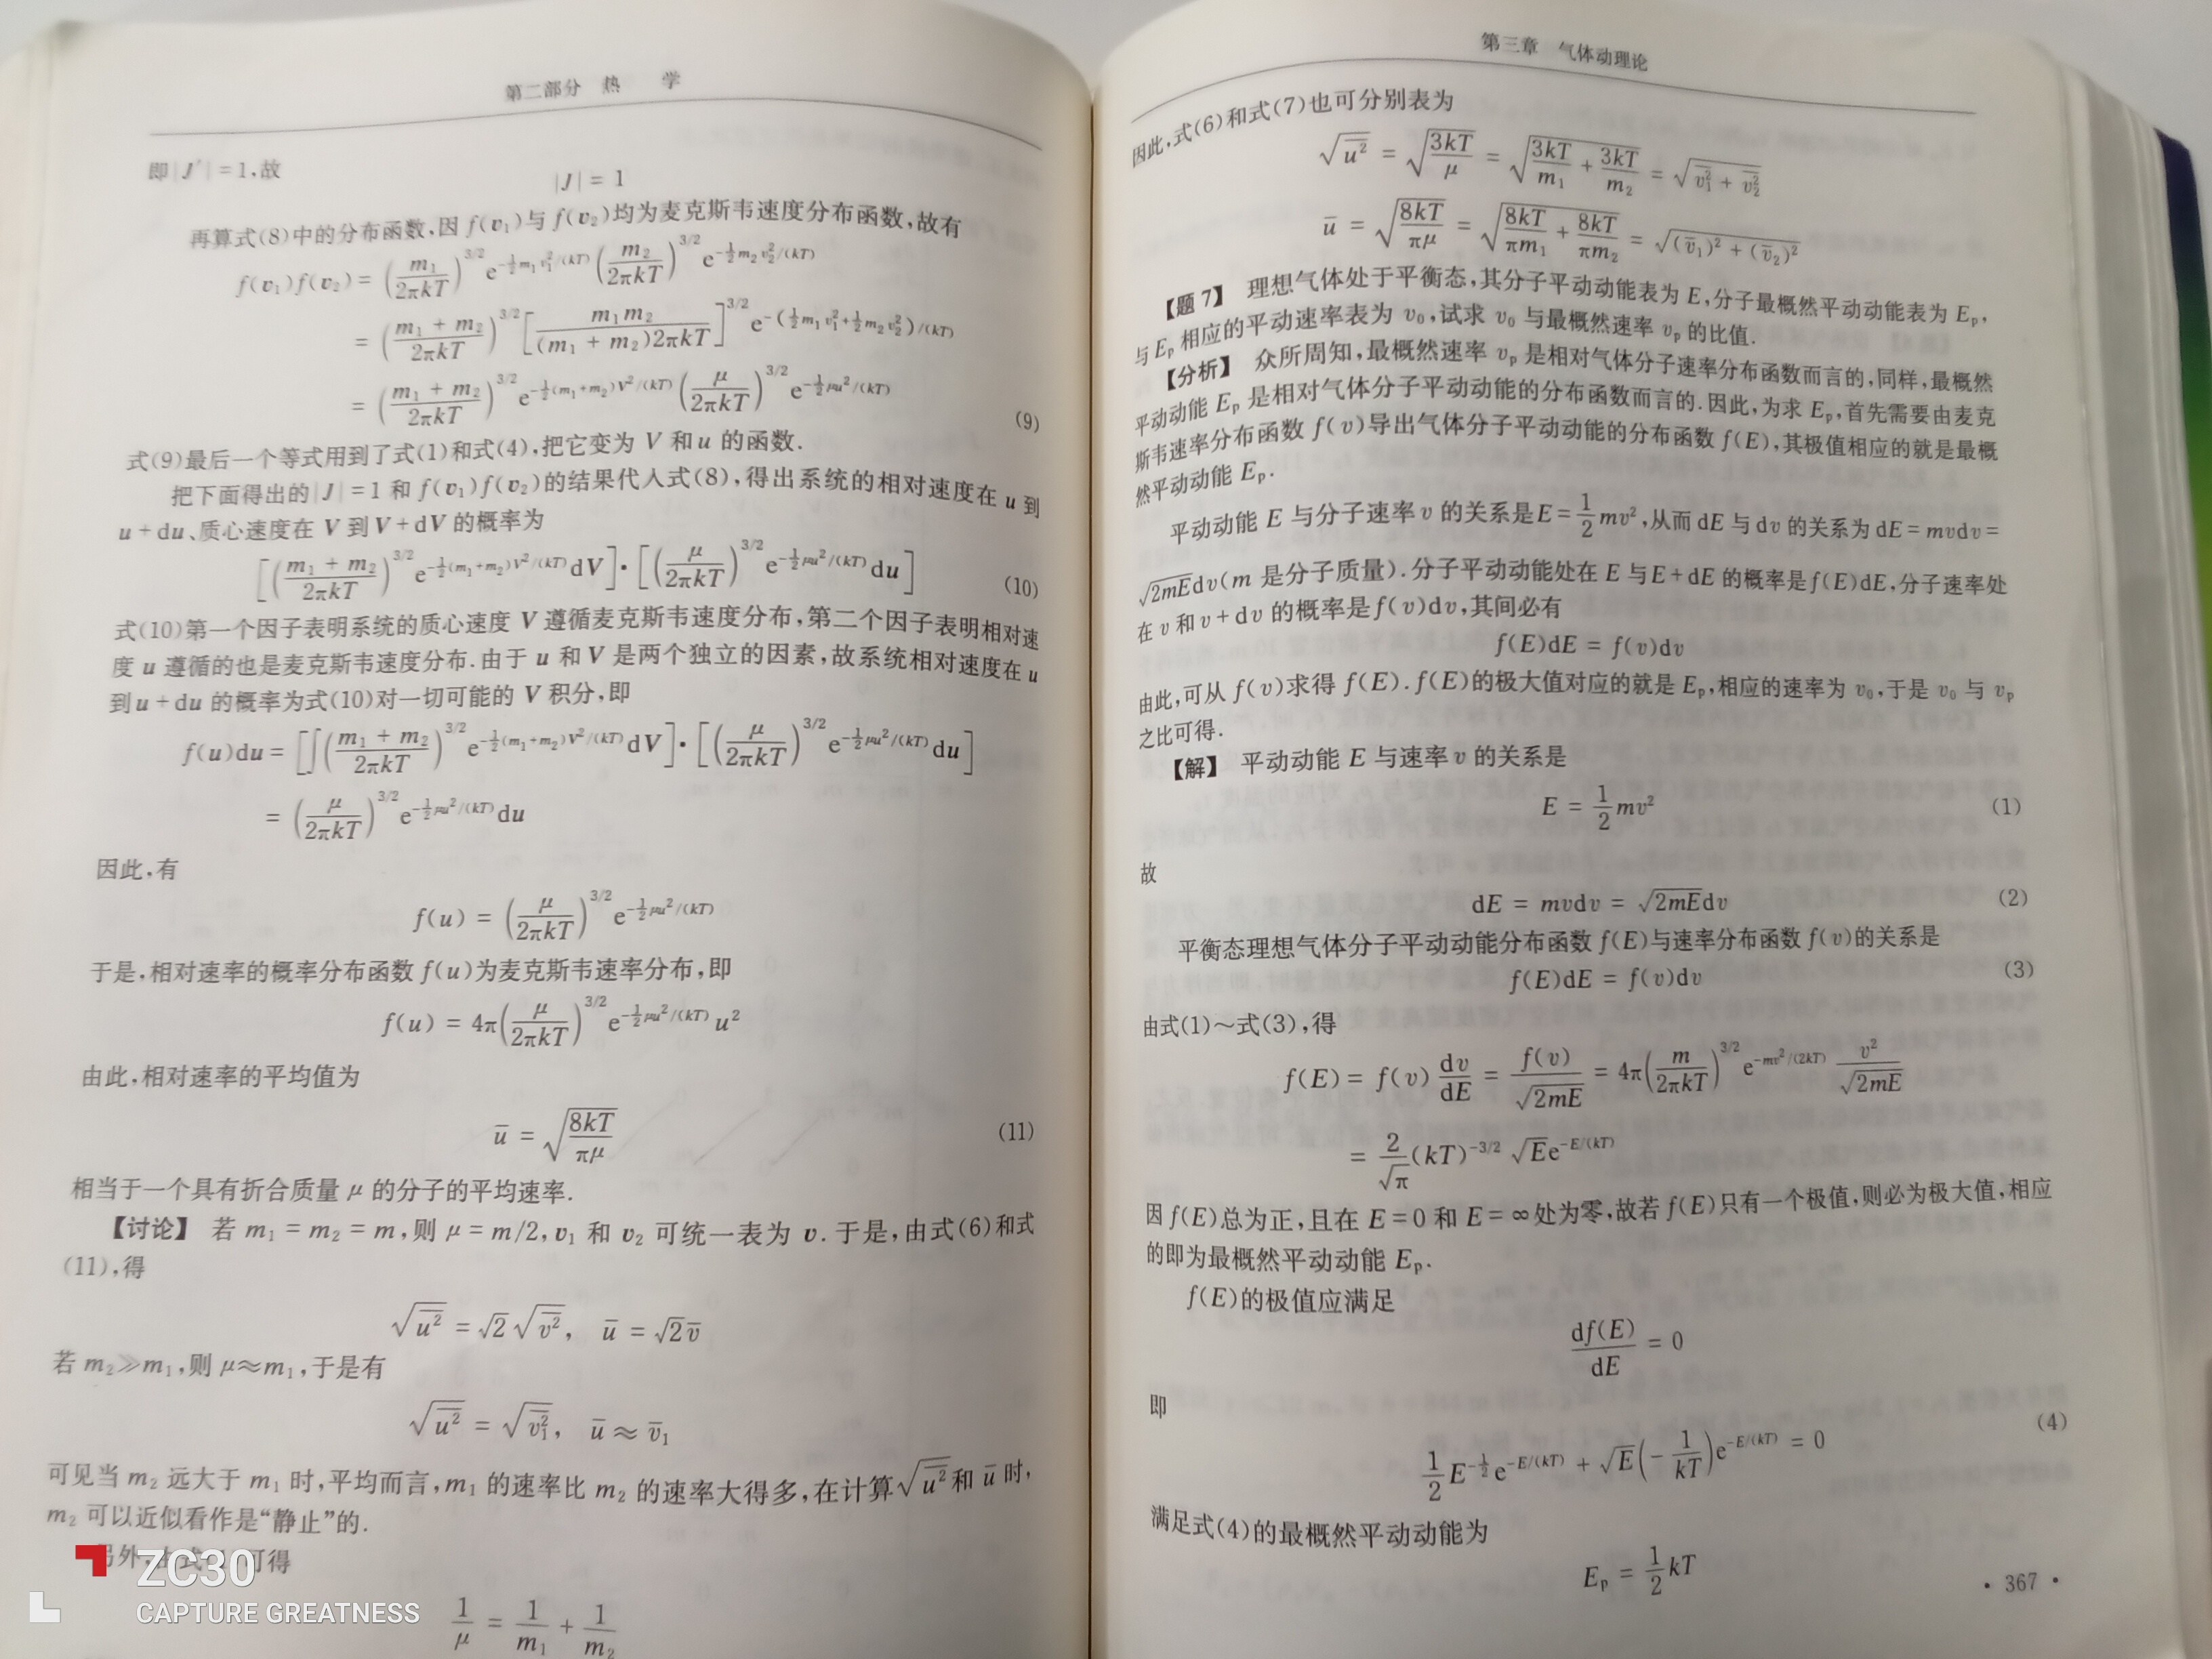 第二部分 热 学
即|J′| = 1,故
|J| = 1
再算式(8)中的分布函数,因 f(v₁)与 f(v₂)均为麦克斯韦速度分布函数,故有
f(v₁)f(v₂) = (m₁/2πkT)^{3/2} e^{-½m₁v₁²/(kT)} (m₂/2πkT)^{3/2} e^{-½m₂v₂²/(kT)}
= ((m₁ + m₂)/2πkT)^{3/2} [m₁m₂/((m₁ + m₂)2πkT)]^{3/2} e^{-(½m₁v₁²+½m₂v₂²)/(kT)}
= ((m₁ + m₂)/2πkT)^{3/2} e^{-½(m₁+m₂)V²/(kT)} (μ/2πkT)^{3/2} e^{-½μu²/(kT)} (9)
式(9)最后一个等式用到了式(1)和式(4),把它变为 V 和 u 的函数.
把下面得出的|J| = 1 和 f(v₁)f(v₂)的结果代入式(8),得出系统的相对速度在 u 到
u + du、质心速度在 V 到 V + dV 的概率为
[((m₁ + m₂)/2πkT)^{3/2} e^{-½(m₁+m₂)V²/(kT)} dV]·[(μ/2πkT)^{3/2} e^{-½μu²/(kT)} du] (10)
式(10)第一个因子表明系统的质心速度 V 遵循麦克斯韦速度分布,第二个因子表明相对速
度 u 遵循的也是麦克斯韦速度分布.由于 u 和 V 是两个独立的因素,故系统相对速度在 u
到 u + du 的概率为式(10)对一切可能的 V 积分,即
f(u)du = [∫((m₁ + m₂)/2πkT)^{3/2} e^{-½(m₁+m₂)V²/(kT)} dV]·[(μ/2πkT)^{3/2} e^{-½μu²/(kT)} du]
= (μ/2πkT)^{3/2} e^{-½μu²/(kT)} du
因此,有
f(u) = (μ/2πkT)^{3/2} e^{-½μu²/(kT)}
于是,相对速率的概率分布函数 f(u)为麦克斯韦速率分布,即
f(u) = 4π(μ/2πkT)^{3/2} e^{-½μu²/(kT)} u²
由此,相对速率的平均值为
ū = √(8kT/πμ) (11)
相当于一个具有折合质量 μ 的分子的平均速率.
【讨论】 若 m₁ = m₂ = m,则 μ = m/2,v₁ 和 v₂ 可统一表为 v.于是,由式(6)和式
(11),得
√(u²‾) = √2 √(v²‾), ū = √2 v̄
若 m₂≫m₁,则 μ≈m₁,于是有
√(u²‾) = √(v₁²‾), ū ≈ v̄₁
可见当 m₂ 远大于 m₁ 时,平均而言,m₁ 的速率比 m₂ 的速率大得多,在计算√(u²‾)和 ū 时,
m₂ 可以近似看作是“静止”的.
另外,由式 可得
1/μ = 1/m₁ + 1/m₂
ZC30
CAPTURE GREATNESS
第三章 气体动理论
因此,式(6)和式(7)也可分别表为
√(u²‾) = √(3kT/μ) = √(3kT/m₁ + 3kT/m₂) = √(v₁²‾ + v₂²‾)
ū = √(8kT/πμ) = √(8kT/πm₁ + 8kT/πm₂) = √((v̄₁)² + (v̄₂)²)
【题 7】 理想气体处于平衡态,其分子平动动能表为 E,分子最概然平动动能表为 Eₚ,
与 Eₚ 相应的平动速率表为 v₀,试求 v₀ 与最概然速率 vₚ 的比值.
【分析】 众所周知,最概然速率 vₚ 是相对气体分子速率分布函数而言的,同样,最概然
平动动能 Eₚ 是相对气体分子平动动能的分布函数而言的.因此,为求 Eₚ,首先需要由麦克
斯韦速率分布函数 f(v)导出气体分子平动动能的分布函数 f(E),其极值相应的就是最概
然平动动能 Eₚ.
平动动能 E 与分子速率 v 的关系是 E = ½mv²,从而 dE 与 dv 的关系为 dE = mvdv =
√(2mE)dv(m 是分子质量).分子平动动能处在 E 与 E + dE 的概率是 f(E)dE,分子速率处
在 v 和 v + dv 的概率是 f(v)dv,其间必有
f(E)dE = f(v)dv
由此,可从 f(v)求得 f(E).f(E)的极大值对应的就是 Eₚ,相应的速率为 v₀,于是 v₀ 与 vₚ
之比可得.
【解】 平动动能 E 与速率 v 的关系是
E = ½mv² (1)
故
dE = mvdv = √(2mE)dv (2)
平衡态理想气体分子平动动能分布函数 f(E)与速率分布函数 f(v)的关系是
f(E)dE = f(v)dv (3)
由式(1)～式(3),得
f(E) = f(v) dv/dE = f(v)/√(2mE) = 4π(m/2πkT)^{3/2} e^{-mv²/(2kT)} v²/√(2mE)
= (2/√π)(kT)^{-3/2} √E e^{-E/(kT)}
因 f(E)总为正,且在 E = 0 和 E = ∞处为零,故若 f(E)只有一个极值,则必为极大值,相应
的即为最概然平动动能 Eₚ.
f(E)的极值应满足
df(E)/dE = 0
即
½E^{-½} e^{-E/(kT)} + √E(-1/kT)e^{-E/(kT)} = 0 (4)
满足式(4)的最概然平动动能为
Eₚ = ½kT
· 367 ·